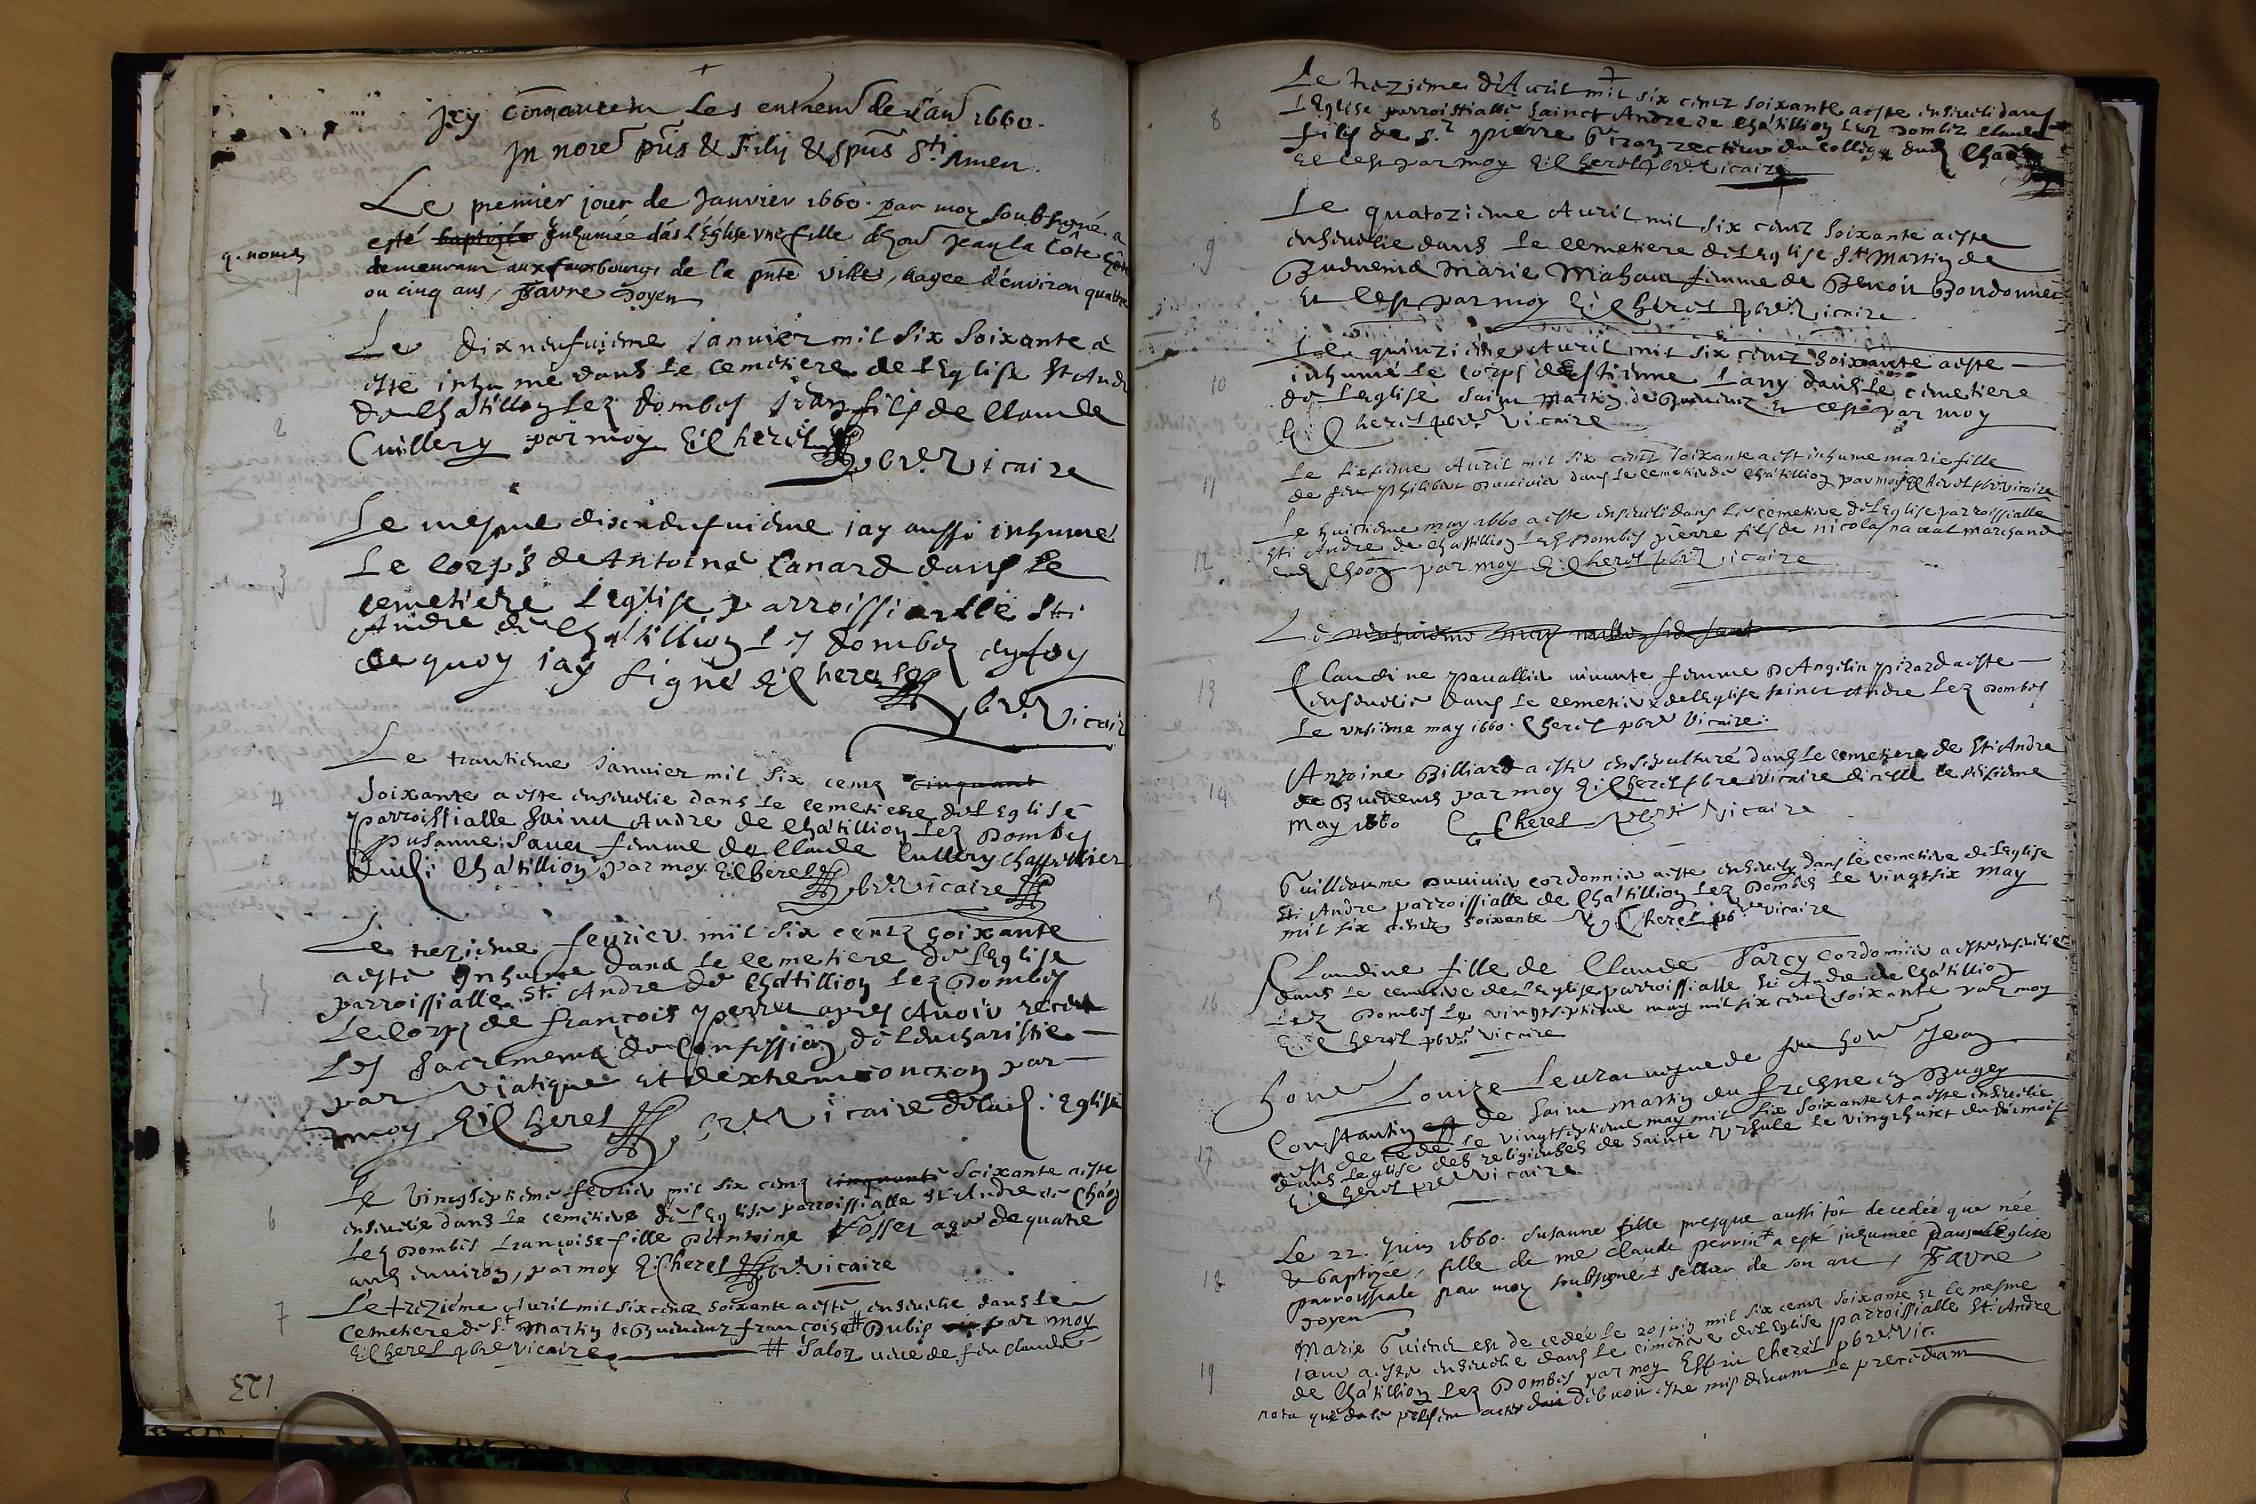 Icy commancent Les enterrem de Lan 1660.
In nore pris & Filij & spus Sti Amen.
Le premier jour de Janvier 1660. par moy soubsigné a
esté baptizée Inhumée das L'Eglise vne fille d'hon Jean la Cote
demeurant aux fauxbourgs de la pnte ville, aagee d'environ quattre
ou cinq ans, Favre Doyen
1
Le dixneufuieme Ianvier mil six Soixante a
esté inhumé dans le cemetiere de l'Eglise St And
de Châtillon lez Dombes Jean fils de Claude
Cuillery par moy Cheret
pbre Vicaire
2
Le mesme dixneufuieme iay aussi inhumé
Le corps de Antoine Canard dans le
cemetiere L'eglise parroissialle Sti
Andre de Châtillion lez Dombes en foy
de quoy iay signé Cheret
pbre Vicair
3
Le trantieme Ianvier mil six cens cinquant
Soixante a esté enseuelie dans le cemetiere de L'Eglise
parroissialle Sainct Andre de Châtillion lez Dombes
Susanne femme de Claude Cullery
dudi Châtillion par moy Cheret
pbre vicaire
4
Le trezieme feurier mil six centz soixante
a esté Inhumé dans le cemetiere de L'Eglise
parroissialle Sti Andre de Châtillion Lez Dombes
Le corps de François Perret apres Auoir receu
Les Sacrements de Confession de Leucharistie
par Viatique et dextreme onction par
moy Cheret pbre Vicaire de lad. Eglise
5
Le Vingtseptieme feurier mil six cens cinquante Soixante a esté
enseuelie dans le cemetiere de L'Eglise parroissialle St Andre de Chaon
Lez Dombes Françoise fille D'Antoine Fosset agé de quatre
ans environ, par moy Cheret pbre vicaire
6
Le trezieme Auril mil six cens soixante a esté enseuelie dans le
Cemetiere de St Martin de Buenenz françoise # Dubis par moy
Cheret pbre Vicaire # Saloz veue de feu Claude
7
123
Le trezieme d'Auril mil six centz soixante a esté enseueli dans
L'Eglise parroissialle Sainct Andre de Châtillion lez Dombes Claude
fils de Sr Pierre Giron recteur du college dud Chaon
Et cest par moy Cheret pbre Vicaire
8
Le quatozieme Auril mil six centz Soixante a esté
enseuelie dans le cemetiere de L'Eglise St Martin de
Buenens Marie Mahaut femme de Benoit Bondonnet
et cest par moy Cheret pbre Vicaire
9
Le quinzieme Auril mil six centz soixante a esté
inhumé le corps d'Estienne Lany dans le cimetiere
de L'eglise Saint Martin de Buenenz et cest par moy
Cheret pbre vicaire
10
Le sixieme Auril mil six centz soixante a est inhume marie fille
de feu Philibert Duuiuier dans le cemetiere de Châtillion par moy Cheret pbre vicaire
11
Le huictieme may 1660 a esté enseueli dans le cemetiere de L'Eglise parroissialle
Sti Andre de Chastillion Lez Dombes Pierre fils de nicolas naual marchand
dud Choon par moy Cheret pbre vicaire
12
Le neufuieme may
Claudine Pauallier uiuante femme D'Angelin Pirard a esté
enseuelie dans le cemetiere de L'Eglise sainct Andre Lez Dombes
Le vnsieme may 1660. Cheret pbre Vicaire
13
Antoine Billiard a esté ensepulturé dans le cemetiere de Sti Andre
de Buenens par moy Cheret pbre vicaire dicelle le seisieme
may 1660 Cheret pbre vicaire
14
Guilleaume Duuiuier cordonnier a esté enseuely dans le cemetiere de L'eglise
Sti Andre parroissialle de Châtillion Lez Dombes Le vingtsix may
mil six centz soixante Cheret pbre vicaire
15
Claudine fille de Claude Parcy Cordonnier a esté enseuelie
dans le cemetiere de L'Eglise parroissialle Sti Andre de Châtillion
Lez Dombes Le vingtseptieme may mil six centz soixante par moy
Cheret pbre Vicaire
16
Hon Louize Leurat uefue de feu hon Jean
Constantin de saint Martin du fresne en Bugey
est de cede le vingtseptieme may mil six soixante et a este enseuelie
dans Leglise des religieuses de Sainte Vrsule le vingthuict du di mois
Cheret pbre Vicaire
17
Le 22. Juin 1660. Susanne fille presque aussi tôt decedée que née
& baptizée, fille de me Claude perrin + a esté inhumée dans L'Eglise
parroissiale par moy soubsigné + sellier de son art, Favre
Doyen
18
Marie Guienet est de cedée le 20 juin mil six cens soixante et le mesme
iour a este enseuelie dans le cimetiere de L'Eglise parroissialle Sti Andre
de Châtillion Lez Dombes par moy Cheret pbre Vic.
nota que le present acte debuoit estre mis deuant le precedant
19